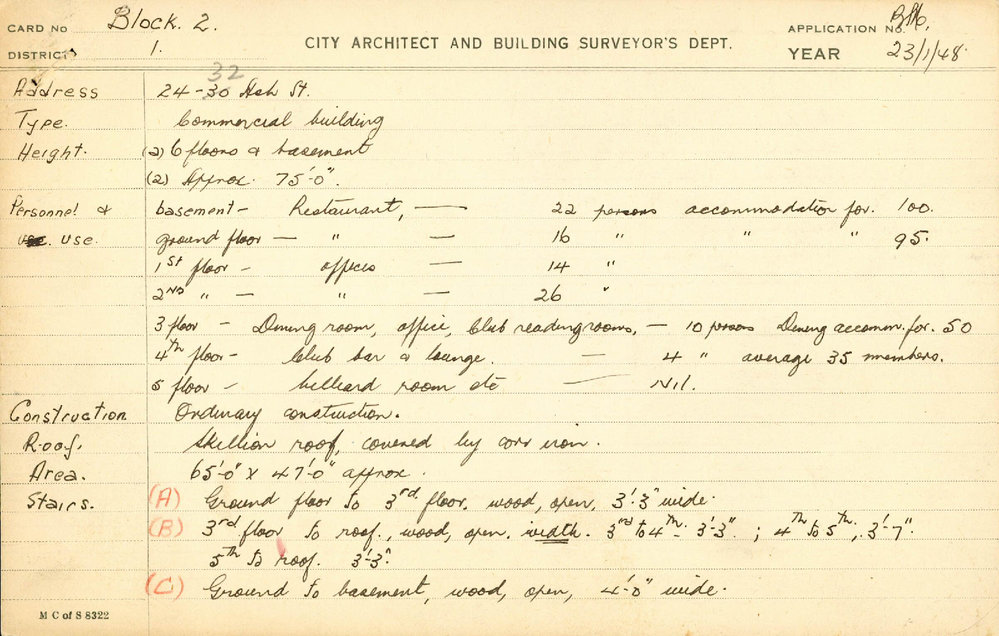 CARD No Block. 2. APPLICATION No.
DISTRICT 1. CITY ARCHITECT AND BUILDING SURVEYOR'S DEPT. YEAR 23/1/48.
32
Address 24-30 Ash St.
Type. Commercial building
Height. 6 floors & basement
(2) Approx. 75'-0".
Personnel & basement - Restaurant, — 22 persons accommodation for. 100.
use. ground floor — " — 16 " " " 95.
1st floor - offices — 14 "
2nd " — " — 26 "
3 floor - Dining room, office, Club reading rooms, — 10 persons Dining accomm. for. 50
4th floor - Club bar & lounge. — 4 " average 35 members.
5 floor - billiard room etc — Nil.
Construction Ordinary construction.
Roof. Skillion roof, covered by corr iron.
Area. 65'-0" x 47'-0" approx.
Stairs. (A) Ground floor to 3rd floor, wood, open, 3'-3" wide.
(B) 3rd floor to roof., wood, open, width. 3rd to 4th - 3'-3". ; 4th to 5th, 3'-7"
5th to roof. 3'-3".
(C) Ground to basement, wood, open, 4'-0" wide.
M C of S 8322